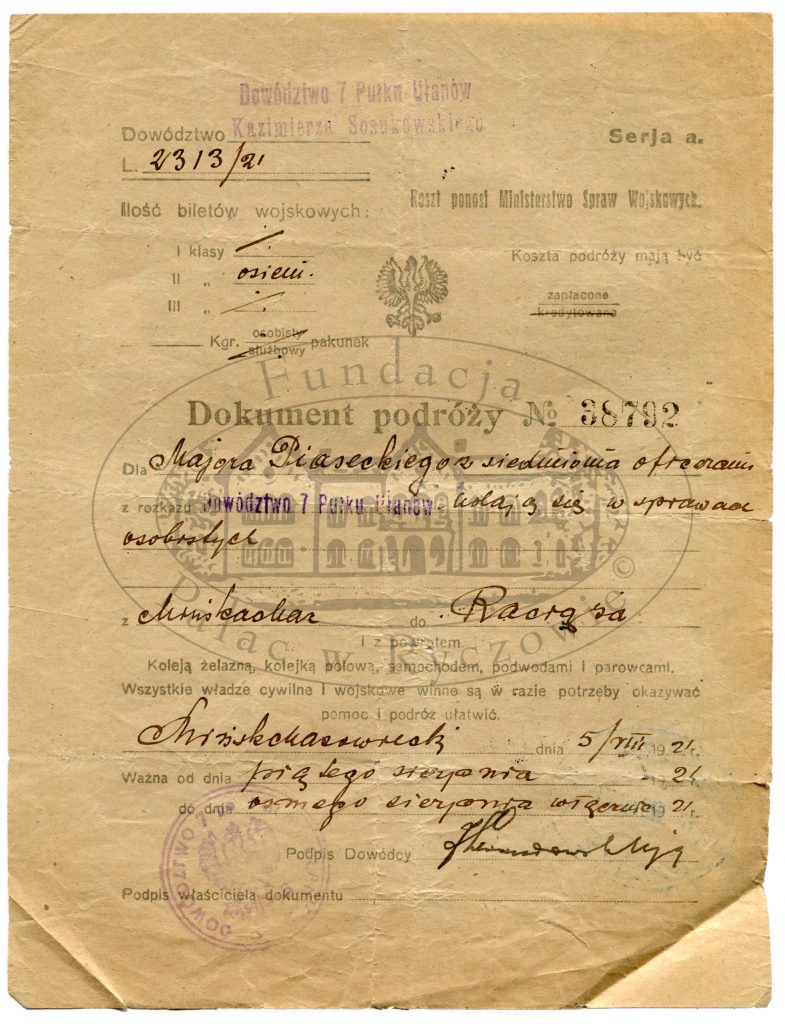 Dowództwo 7 Pułku Ułanów
Dowództwo Kazimierza Sosnkowskiego
Serja a.
L. 2313/21
Koszt ponosi Ministerstwo Spraw Wojskowych.
Ilość biletów wojskowych:
I klasy /.
Koszta podróży mają być
II „ osiem.
zapłacone
III „ /.
kredytowano
Kgr. osobisty
służbowy pakunek
Fundacja
Dokument podróży № 38792
Dla Majora Piaseckiego z siedmioma oficerami
z rozkazu Dowództwo 7 Pułku Ułanów - udają się w sprawach
osobistych
Pałac w Ryczowie ©
z Mińska Maz do Raciąża
i z powrotem.
Koleją żelazną, kolejką polową, samochodem, podwodami i parowcami.
Wszystkie władze cywilne i wojskowe winne są w razie potrzeby okazywać
pomoc i podróż ułatwić.
Mińsk Mazowiecki dnia 5/VIII 1921 r.
Ważna od dnia piątego sierpnia 1921
do dnia osmego sierpnia włącznie 1921.
Podpis Dowódcy
Podpis właściciela dokumentu
DOWÓDZTWO 7